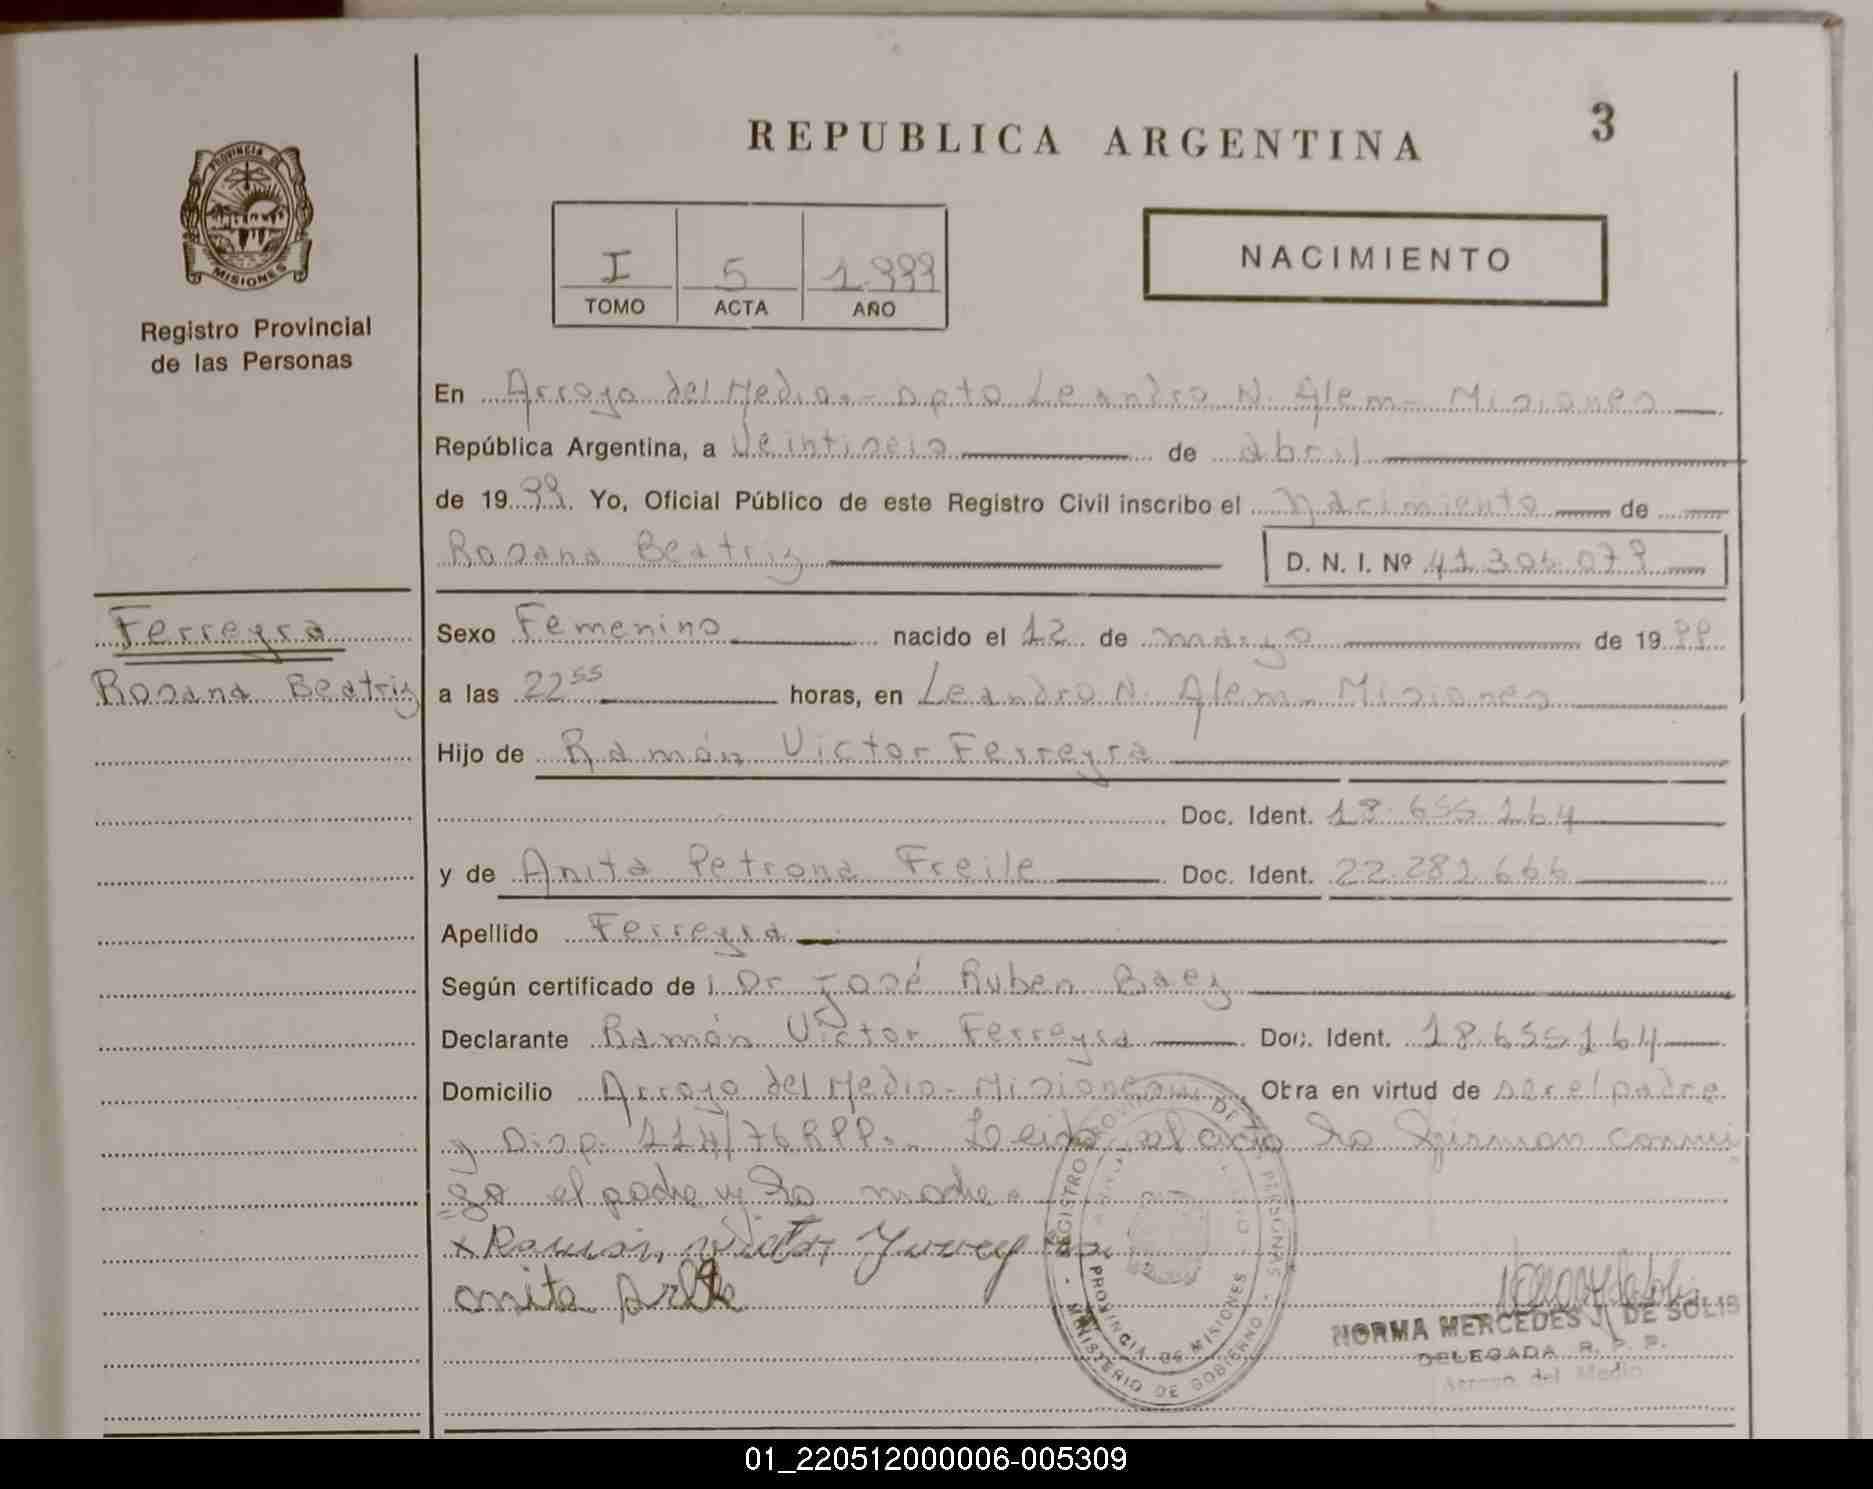 REPUBLICA ARGENTINA
3
PROVINCIA DE
MISIONES
Registro Provincial
de las Personas
I 5 1.999
TOMO ACTA AÑO
NACIMIENTO
En Arroyo del Medio.- Dpto Leandro N. Alem- Misiones
República Argentina, a Veintiseis de abril
de 1999. Yo, Oficial Público de este Registro Civil inscribo el nacimiento de
Rosana Beatriz
D. N. I. Nº 41.306.079
Ferreyra
Rosana Beatriz
Sexo Femenino nacido el 12 de marzo de 1999
a las 22 55 horas, en Leandro N. Alem- Misiones
Hijo de Ramón Victor Ferreyra
Doc. Ident. 18.655.164
y de Anita Petrona Freile Doc. Ident. 22.282.666
Apellido Ferreyra
Según certificado de Dr José Ruben Baez
Declarante Ramón Victor Ferreyra Doc. Ident. 18.655.164
Domicilio Arroyo del Medio- Misiones Obra en virtud de ser el padre
y Disp. 114/76 RPP.- Leida el acta la firman conmi
go el padre y la madre.
anita
REGISTRO PROVINCIAL DE LAS PERSONAS
PROVINCIA DE MISIONES
MINISTERIO DE GOBIERNO
NORMA MERCEDES J DE SOLIS
DELEGADA R. P. P.
Arroyo del Medio
01_220512000006-005309